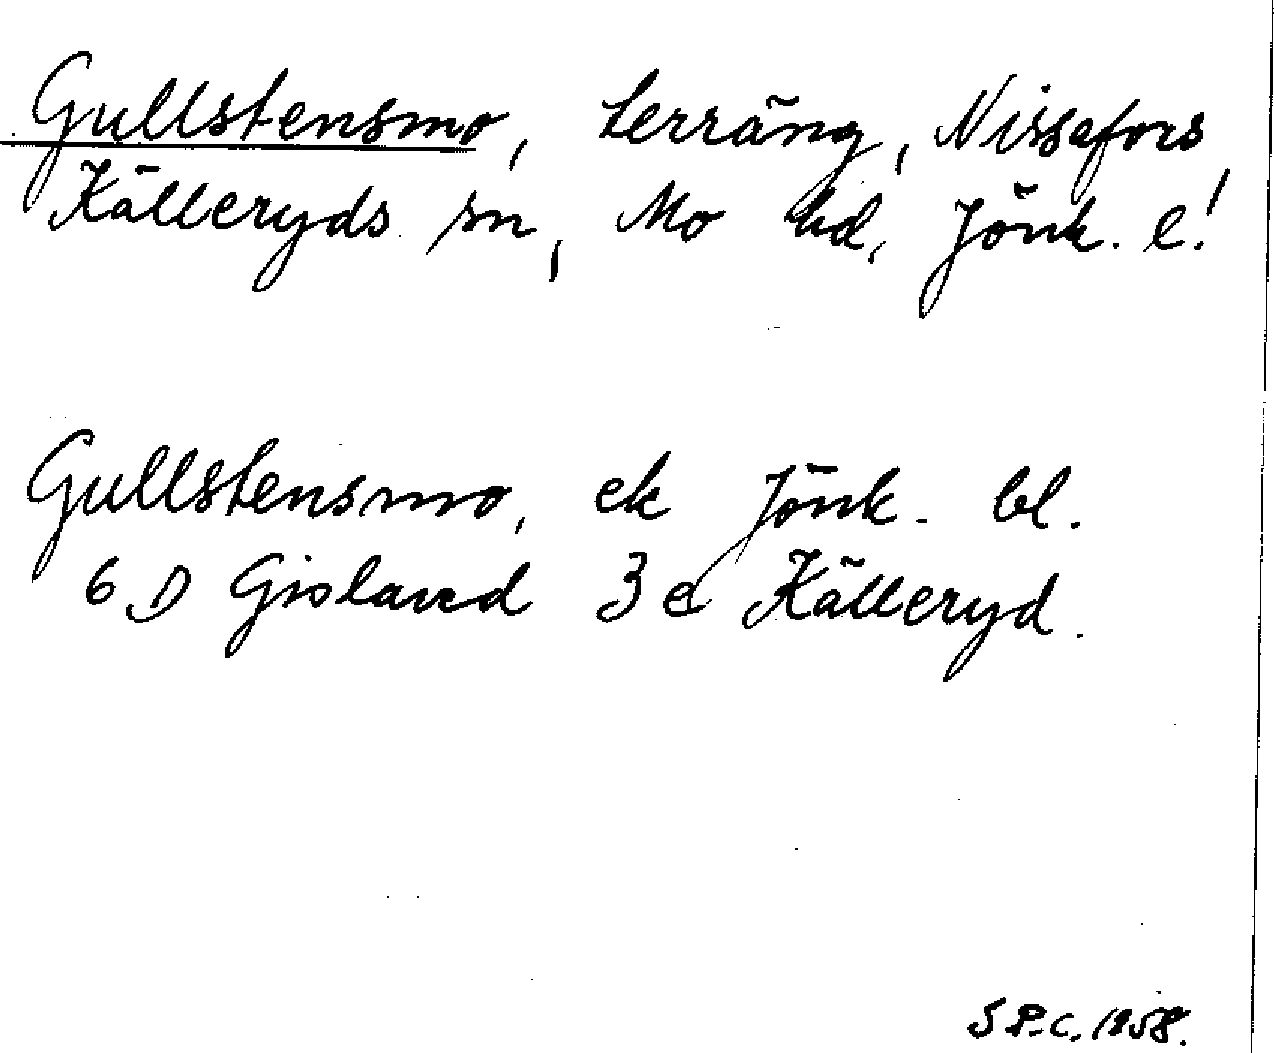 Gullstensmo, terräng, Nissafors,
Källeryds sn, Mo hd, Jönk. l!
Gullstensmo, ek Jönk. bl.
6 D Gislaved 3 e Källeryd.
S P.C. 1958.